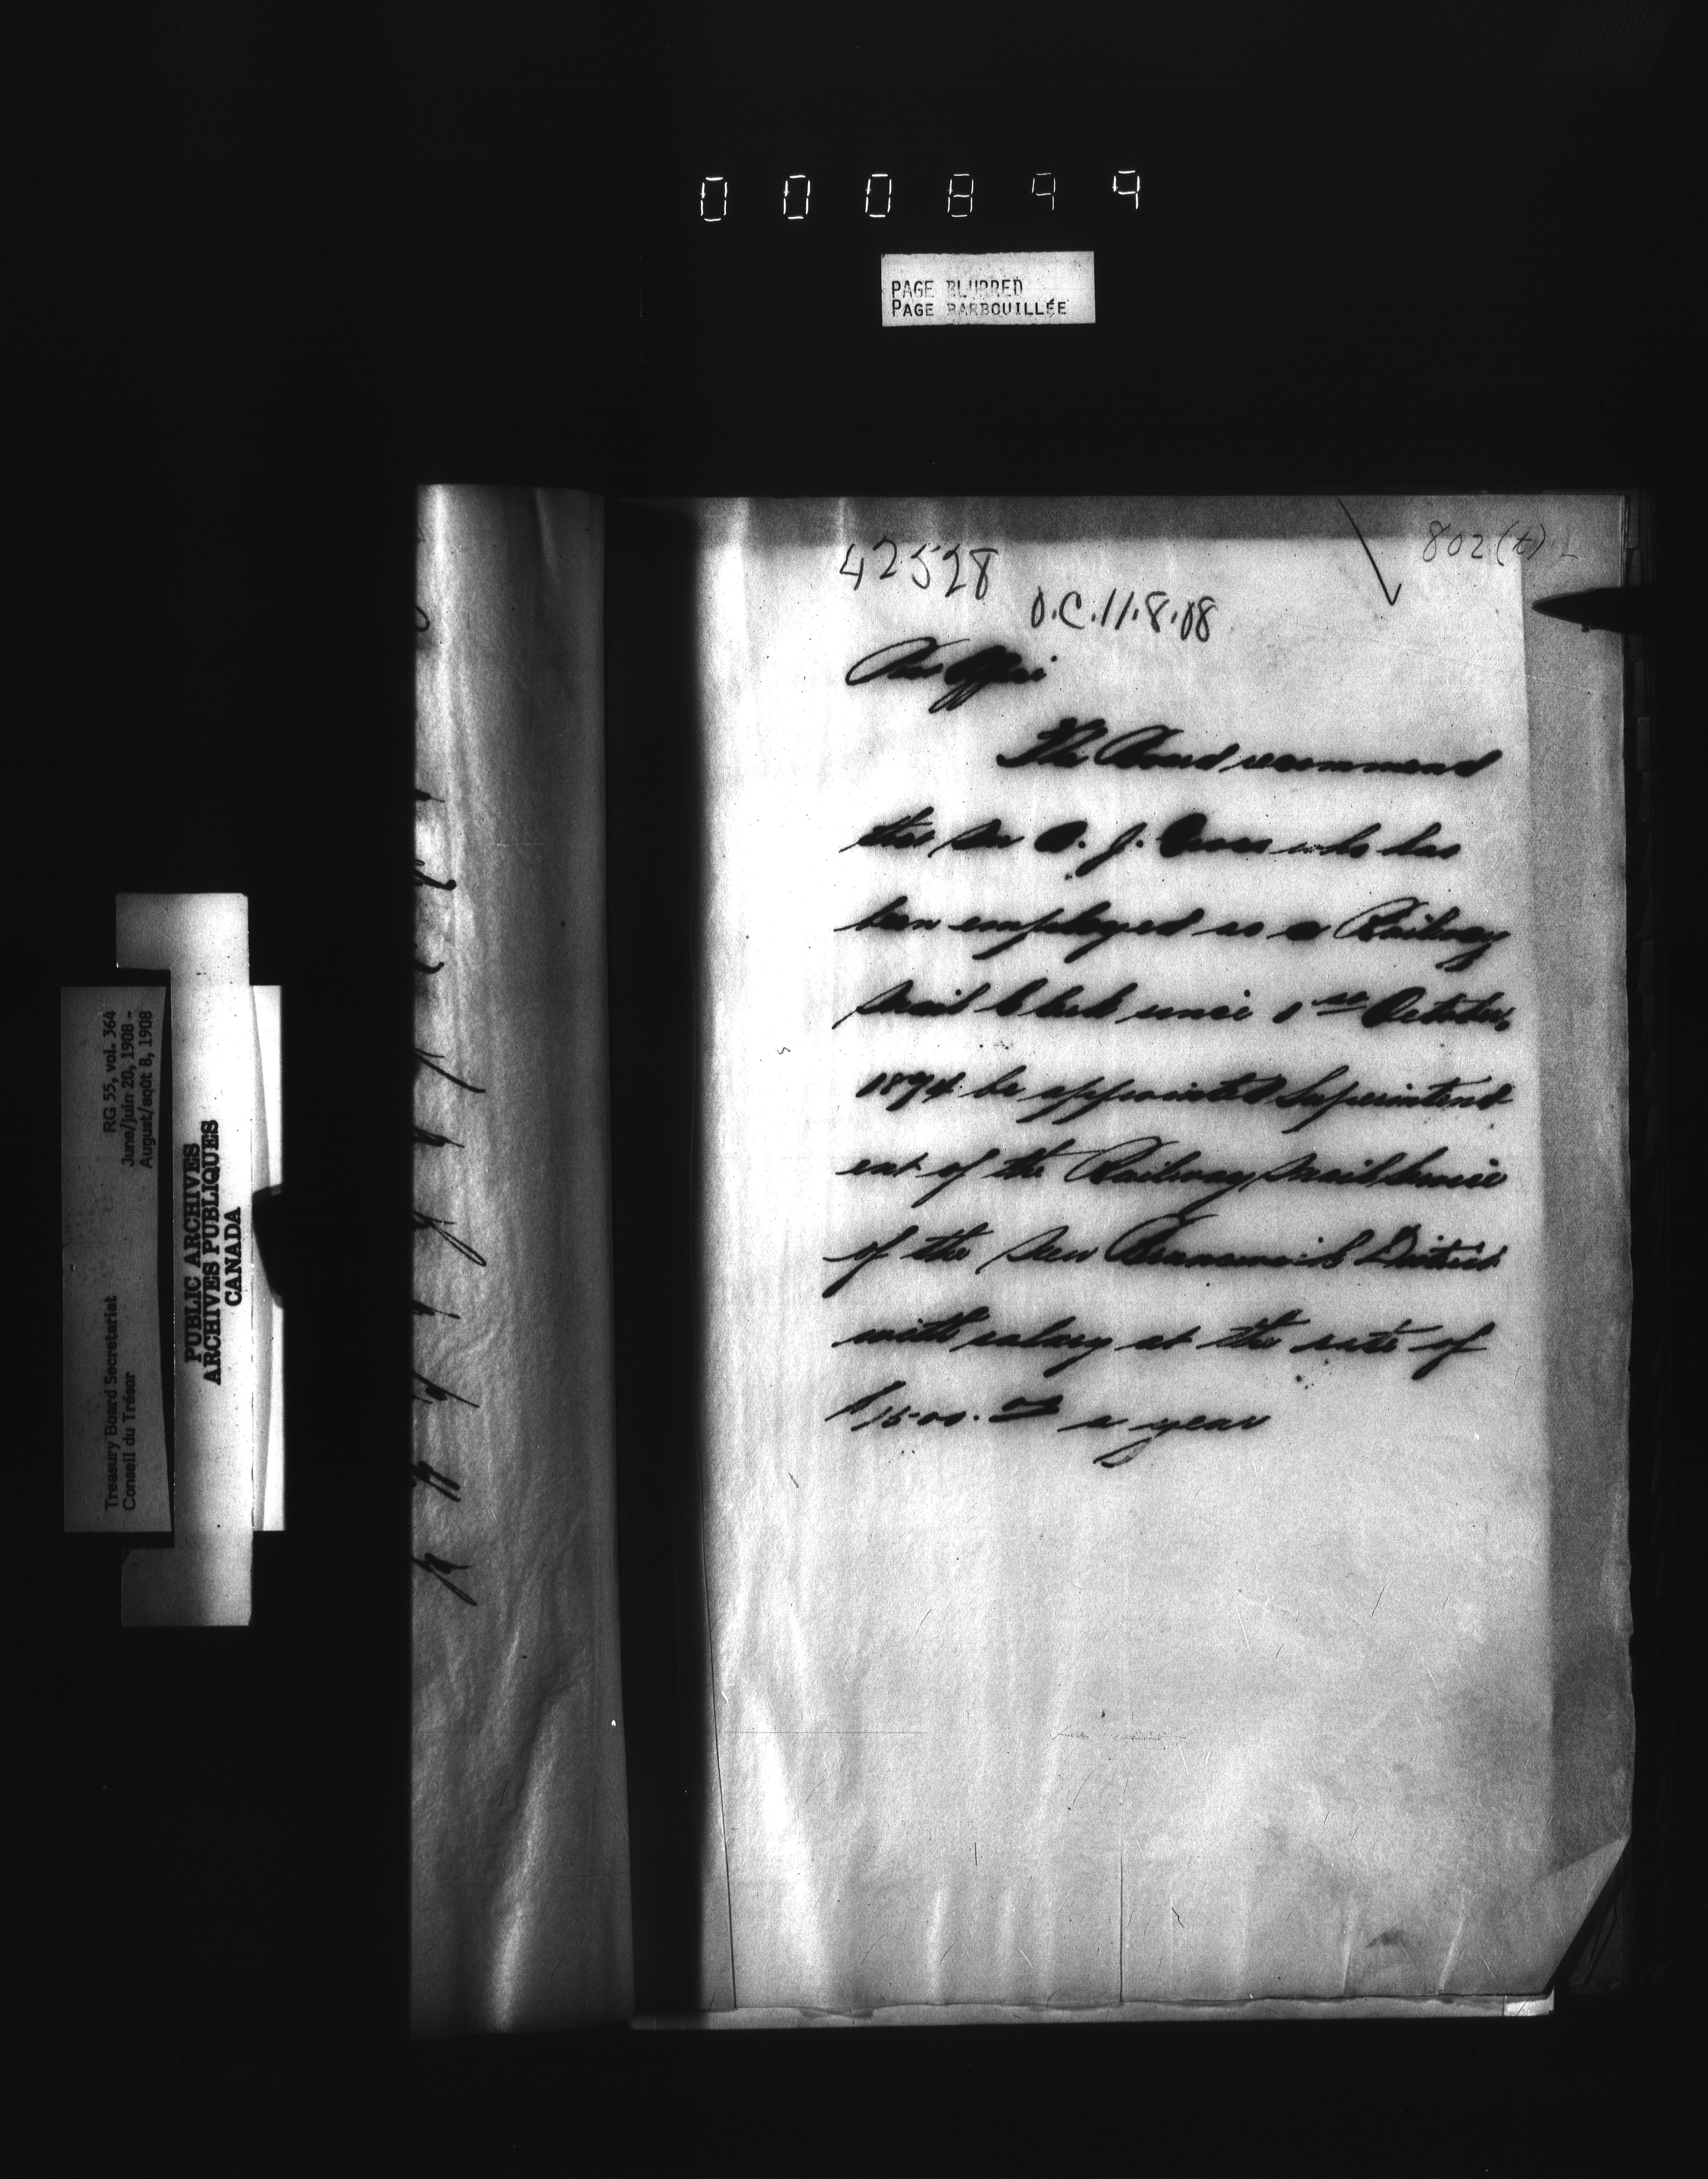 000899
PAGE BLURRED
PAGE BARBOUILLÉE
802(t)
42528
O.C. 11.8.08
Post Office
The Board recommend
that Mr J.
who has
been employed as a Railway
Mail Clerk since 1st October,
1894 be appointed Superintend
ent of the Railway Mail Service
of the New Brunswick District
with salary at the rate of
$1500.00 a year
Treasury Board Secretariat RG 55, vol. 364
Conseil du Trésor June/juin 20, 1908 -
August/août 8, 1908
PUBLIC ARCHIVES
ARCHIVES PUBLIQUES
CANADA